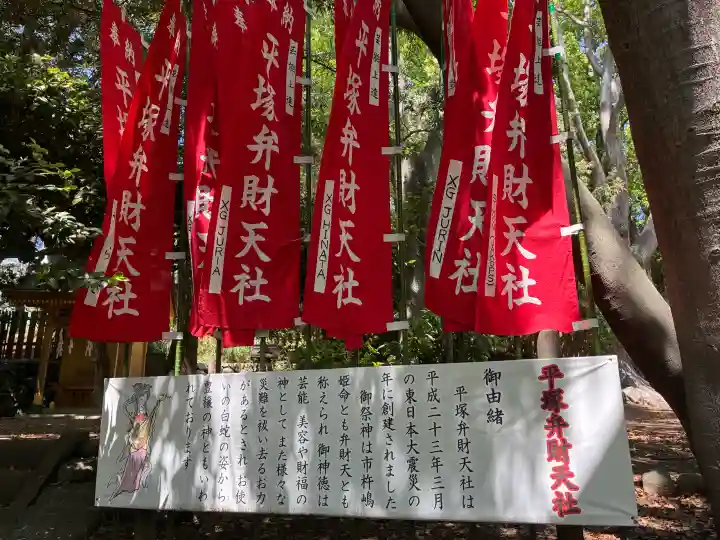 奉納
平塚弁財天社
奉納
平塚弁財天社
芸能上達
XG JURIA
奉納
平塚弁財天社
芸能上達
XG HINATA
平塚弁財天社
XG JURIN
平塚弁財天社
平塚弁財天社
御由緒
平塚弁財天社は
平成二十三年三月
の東日本大震災の
年に創建されました
御祭神は市杵嶋
姫命とも弁財天とも
称えられ 御神徳は
芸能 美容や財福の
神として また様々な
災難を祓い去るお力
があるとされ お使
いの白蛇の姿から
豊穣の神ともいわ
れております